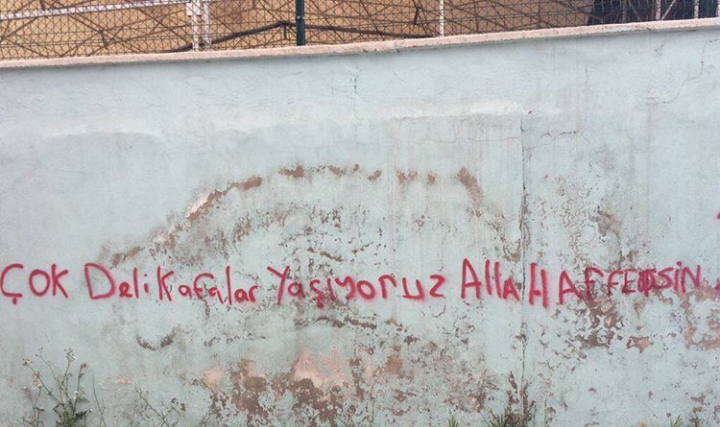 ÇOK Deli Kafalar Yaşıyoruz ALLAH AFFETSİN